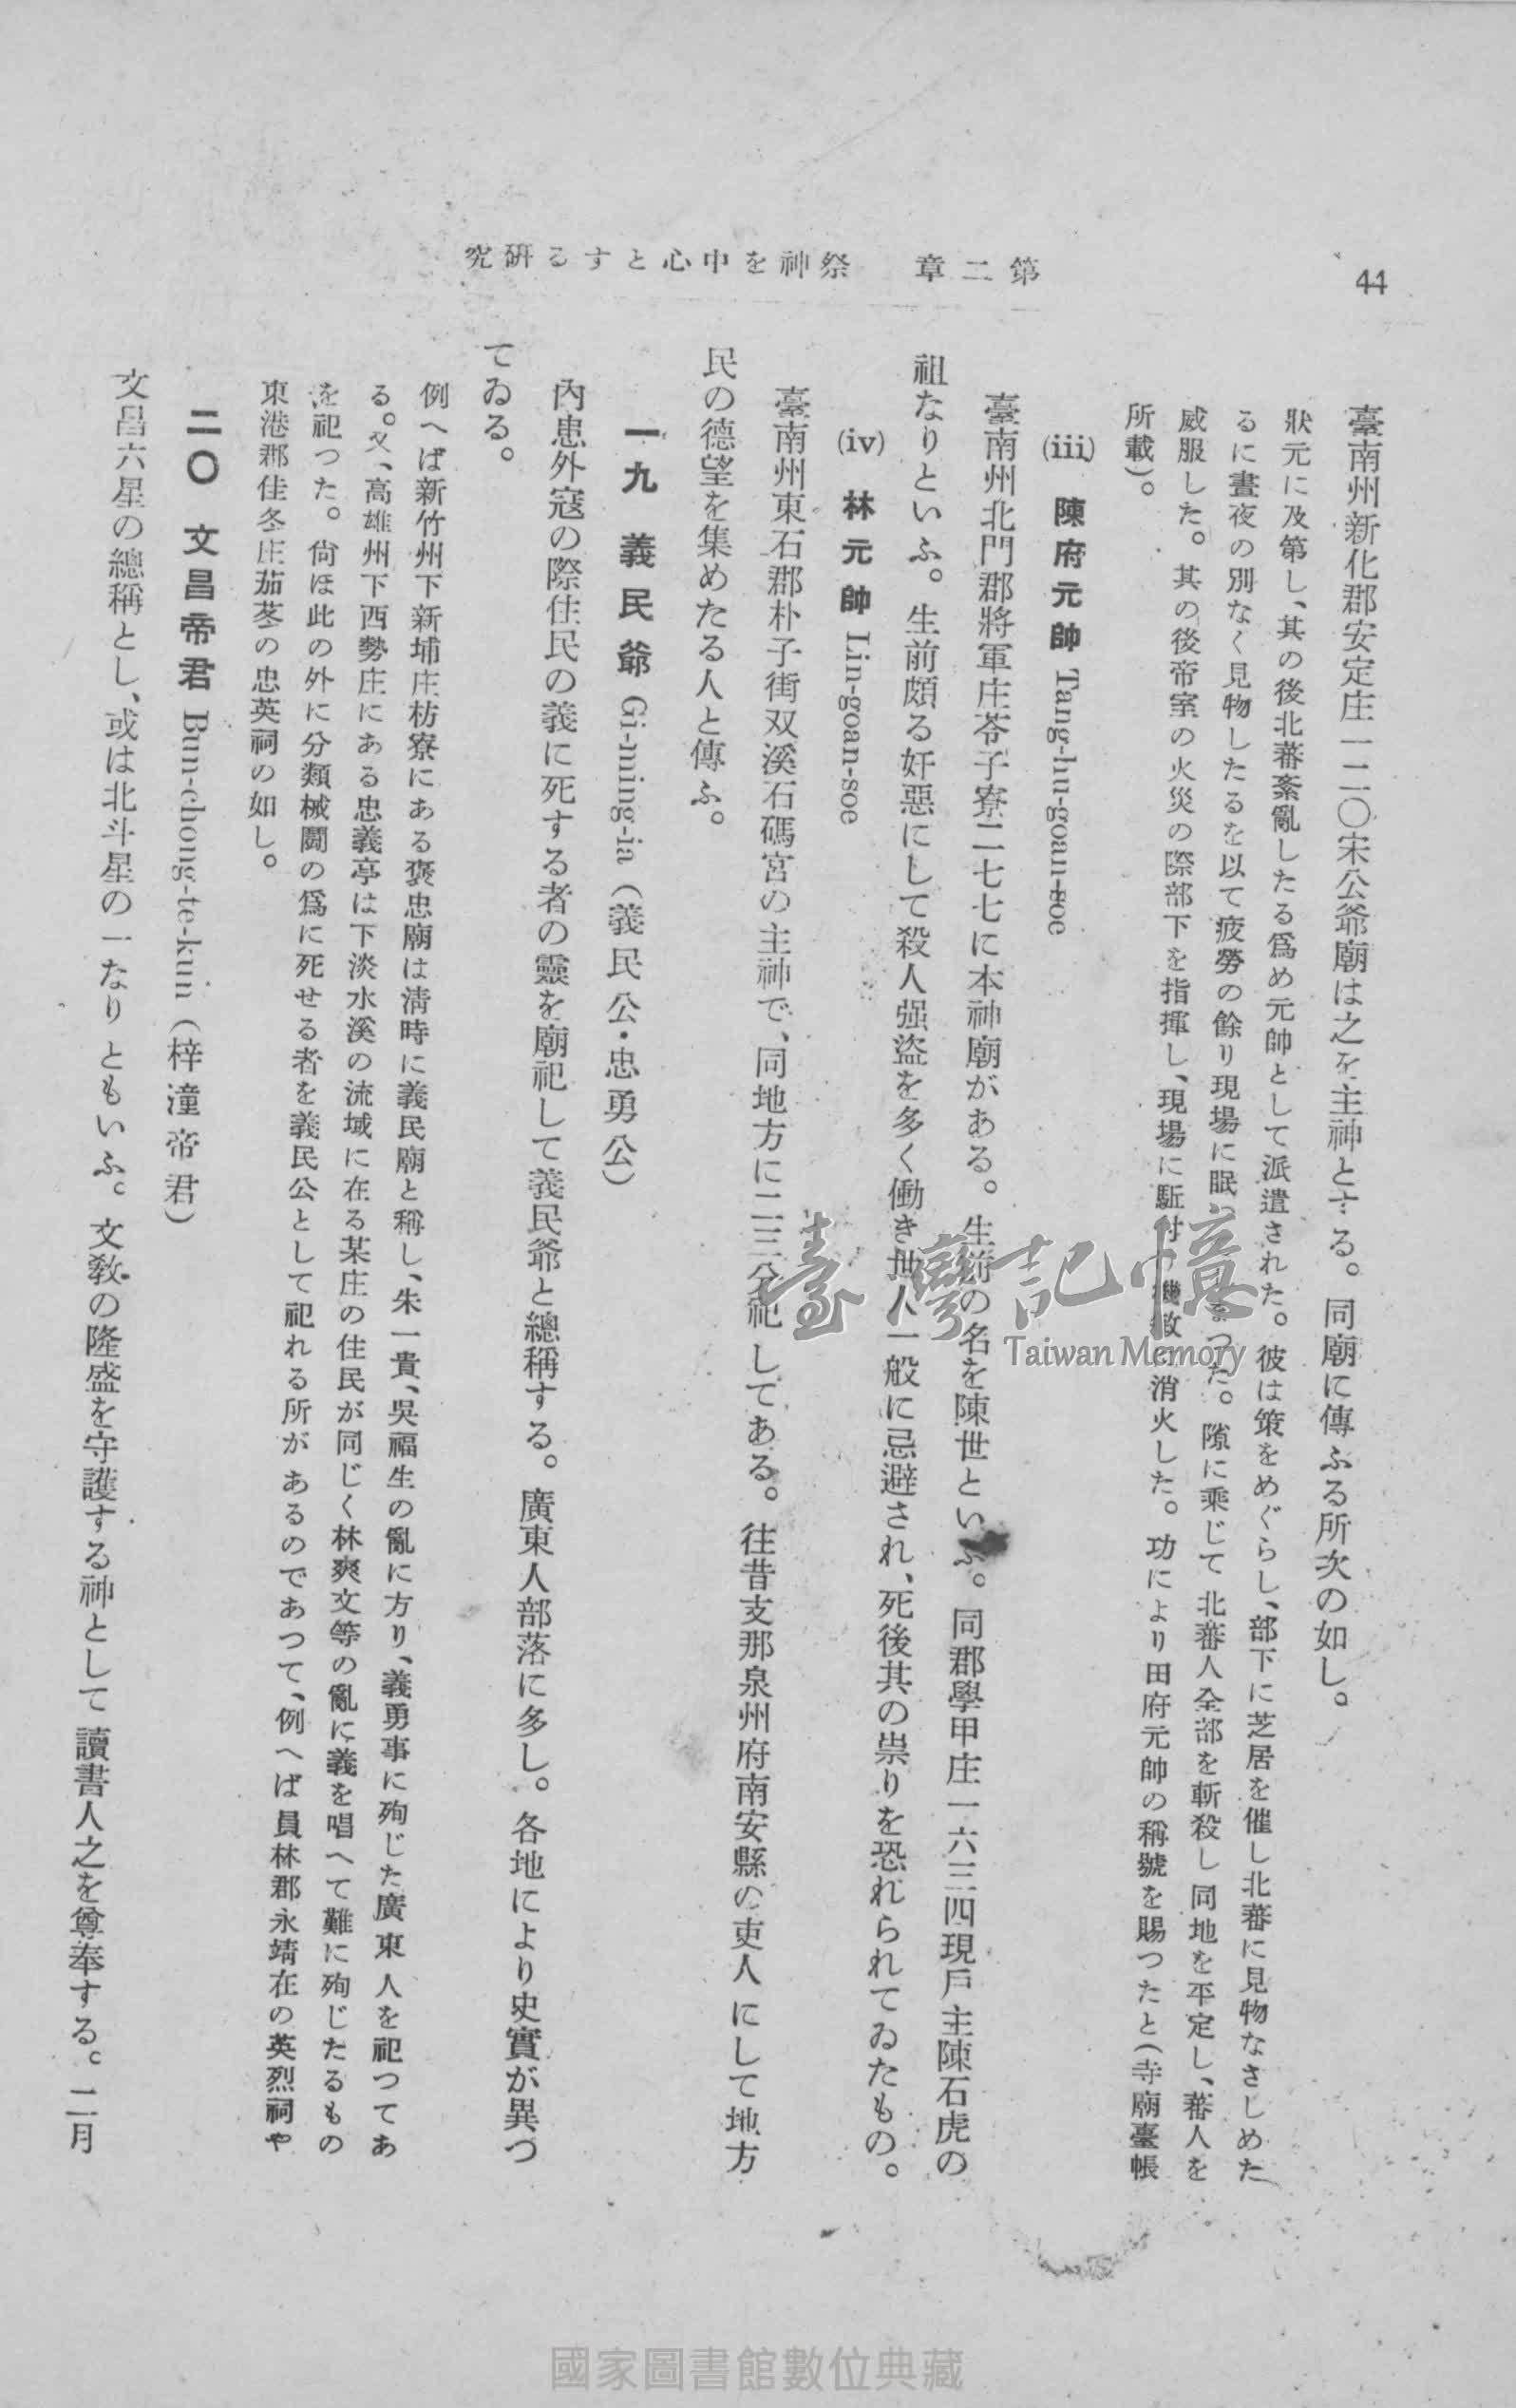 44
第二章 祭神を中心とする硏究
臺南州新化郡安定庄一二〇宋公爺廟は之を主神とする。同廟に傳ふる所次の如し。
狀元に及第し、其の後北蕃紊亂したる爲め元帥として派遣された。彼は策をめぐらし、部下に芝居を催し北蕃に見物なさしめた
るに晝夜の別なく見物したるを以て疲勞の餘り現場に眠つた。隙に乘じて北蕃人全部を斬殺し同地を平定し、蕃人を
威服した。其の後帝室の火災の際部下を指揮し、現場に駈付消火した。功により田府元帥の稱號を賜つたと(寺廟臺帳
所載)。
(iii) 陳府元帥 Tang-hu-goan-soe
臺南州北門郡將軍庄苓子寮二七七に本神廟がある。生前の名を陳世といふ。同郡學甲庄一六三四現戶主陳石虎の
祖なりといふ。生前頗る奸惡にして殺人强盜を多く働き世人一般に忌避され、死後其の祟りを恐れられてゐたもの。
(iv) 林元帥 Lin-goan-soe
臺南州東石郡朴子街双溪石碼宮の主神で、同地方に二三分祀してある。往昔支那泉州府南安縣の吏人にして地方
民の德望を集めたる人と傳ふ。
一九 義民爺 Gi-ming-ia (義民公・忠勇公)
內患外寇の際住民の義に死する者の靈を廟祀して義民爺と總稱する。廣東人部落に多し。各地により史實が異つ
てゐる。
例へば新竹州下新埔庄枋寮にある褒忠廟は淸時に義民廟と稱し、朱一貴、吳福生の亂に方り、義勇事に殉じた廣東人を祀つてあ
る。又、高雄州下西勢庄にある忠義亭は下淡水溪の流域に在る某庄の住民が同じく林爽文等の亂に義を唱へて難に殉じたるもの
を祀つた。尙ほ此の外に分類械鬪の爲に死せる者を義民公として祀れる所があるのであつて、例へば員林郡永靖在の英烈祠や
東港郡佳冬庄茄苳の忠英祠の如し。
二〇 文昌帝君 Bun-chong-te-kun (梓潼帝君)
文昌六星の總稱とし、或は北斗星の一なりともいふ。文敎の隆盛を守護する神として讀書人之を尊奉する。二月
臺灣記憶
Taiwan Memory
國家圖書館數位典藏